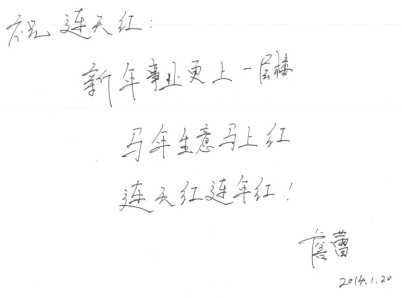 祝连天红:
新年事业更上一层楼
马年生意马上红
连天红连年红!
詹蕾
2014.1.20